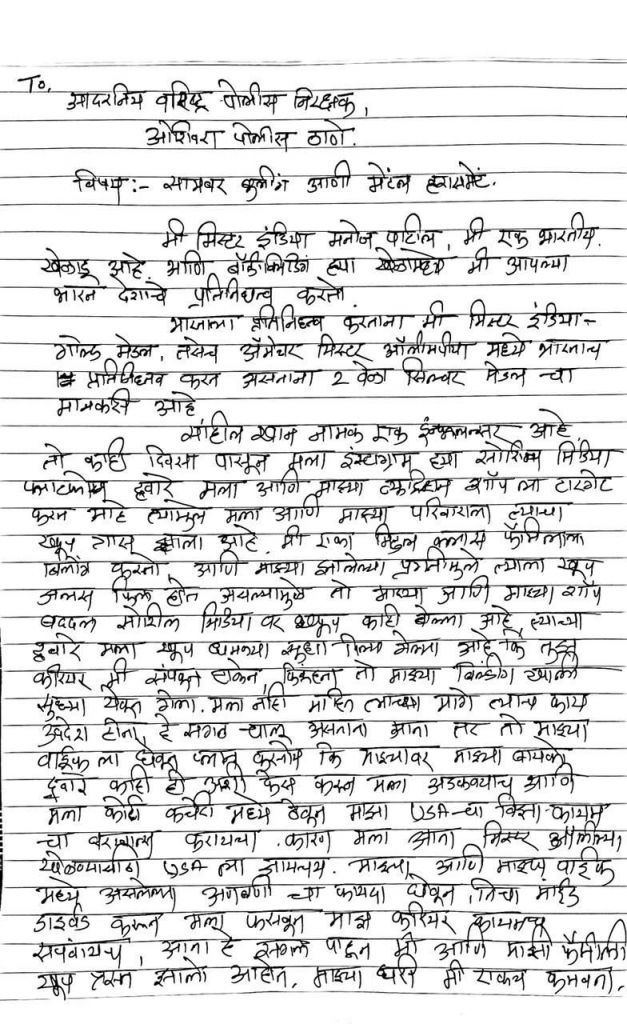 To,
आदरनिय वरिष्ट पोलीस निरक्षक,
ओशिवरा पोलीस ठाणे.
विषय:- सायबर बुलींग आणी मेंटल हरासमेंट.
मी मिस्टर इंडिया मनोज पाटील, मी एक भारतीय.
खेळाडू आहे. आणि बॉडीबिल्डिंग ह्या खेळामध्ये मी आपल्या
भारत देशाचे प्रतिनिधत्व करतो.
भारताला प्रतिनिधत्व करताना मी मिस्टर इंडिया-
गोल्ड मेडल, तसेच अ‍ॅमेचर मिस्टर ऑलीमपीया मध्ये भारताच
प्रतिनिधत्व करत असताना 2 वेळा सिल्वर मेडल चा
मानकरी आहे
साहील खान नामक एक इंफ्लुएन्सर आहे
तो काही दिवसा पासून मला इंस्टाग्राम ह्या सोशियल मिडिया
प्लाटफोर्म द्वारे मला आणि माझ्या न्यूट्रिशन शॉप ला टारगेट
करत आहे त्यामुळे मला आणि माझ्या परिवाराला त्याचा
खूप त्रास झाला आहे. मी एका मिडल क्लास फॅमिलीला
बिलोंग करतो, आणि माझ्या झालेल्या प्रगतीमुळे त्याला खूप
जलस फिल होत असल्यामुळे तो माझ्या आणि माझ्या शॉप
बददल सोशील मिडिया वर खूप काही बोलला आहे, त्याच्या
द्वारे मला खूप धमक्या सुध्दा दिल्या गेल्या आहे कि तुझं
करियर मी संपवून टाकेन, किंबहुना तो माझ्या बिल्डींग खाली
सुध्धा येऊन गेला. मला नाही माहित त्याच्या मागे त्याच काय
उद्देश होता, हे सगळ चालू असताना आता तर तो माझ्या
वाईफ ला घेऊन प्लान करतोय कि माझ्यावर माझ्या बायको
द्वारे काही ही अशी केस करून मला अडकवायच आणि
मला कोर्ट कचेरी मध्ये ठेवून माझा USA-चा विझा कायम
चा बरखास्त करायचा. कारण मला आता मिस्टर ऑलंपिया
खेळण्यासाठी USA ला जायचय. माझ्या आणि माझ्या वाईफ
मध्ये असलेल्या अणबणी चा फायदा घेवून, तिचा माईंड
डाइवर्ड करून मला फसवून माझ करियर कायमच
संपवायच, आता हे सगळ पाहून मी आणि माझी फॅमीली
खूप त्रस्त झालो आहोत. माझ्या घरी मी एकच कमवता.